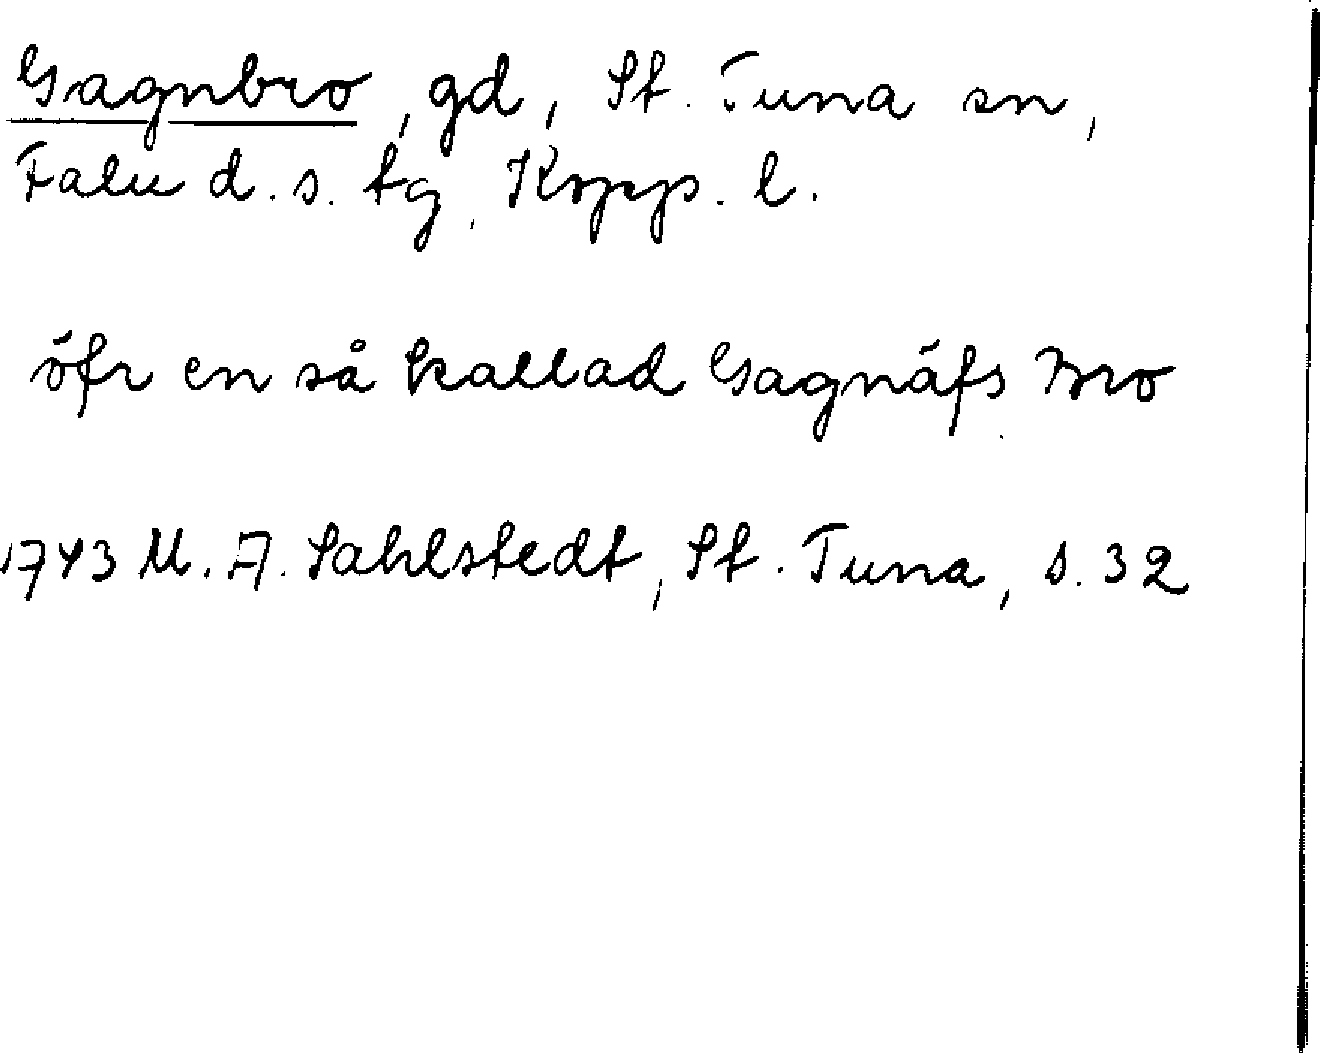 Gagnbro, gd, St. Tuna sn,
Falu d. s. tg, Kopp. l.
öfr en så kallad Gagnäfs Bro
1743 M. A. Sahlstedt, St. Tuna, s. 32